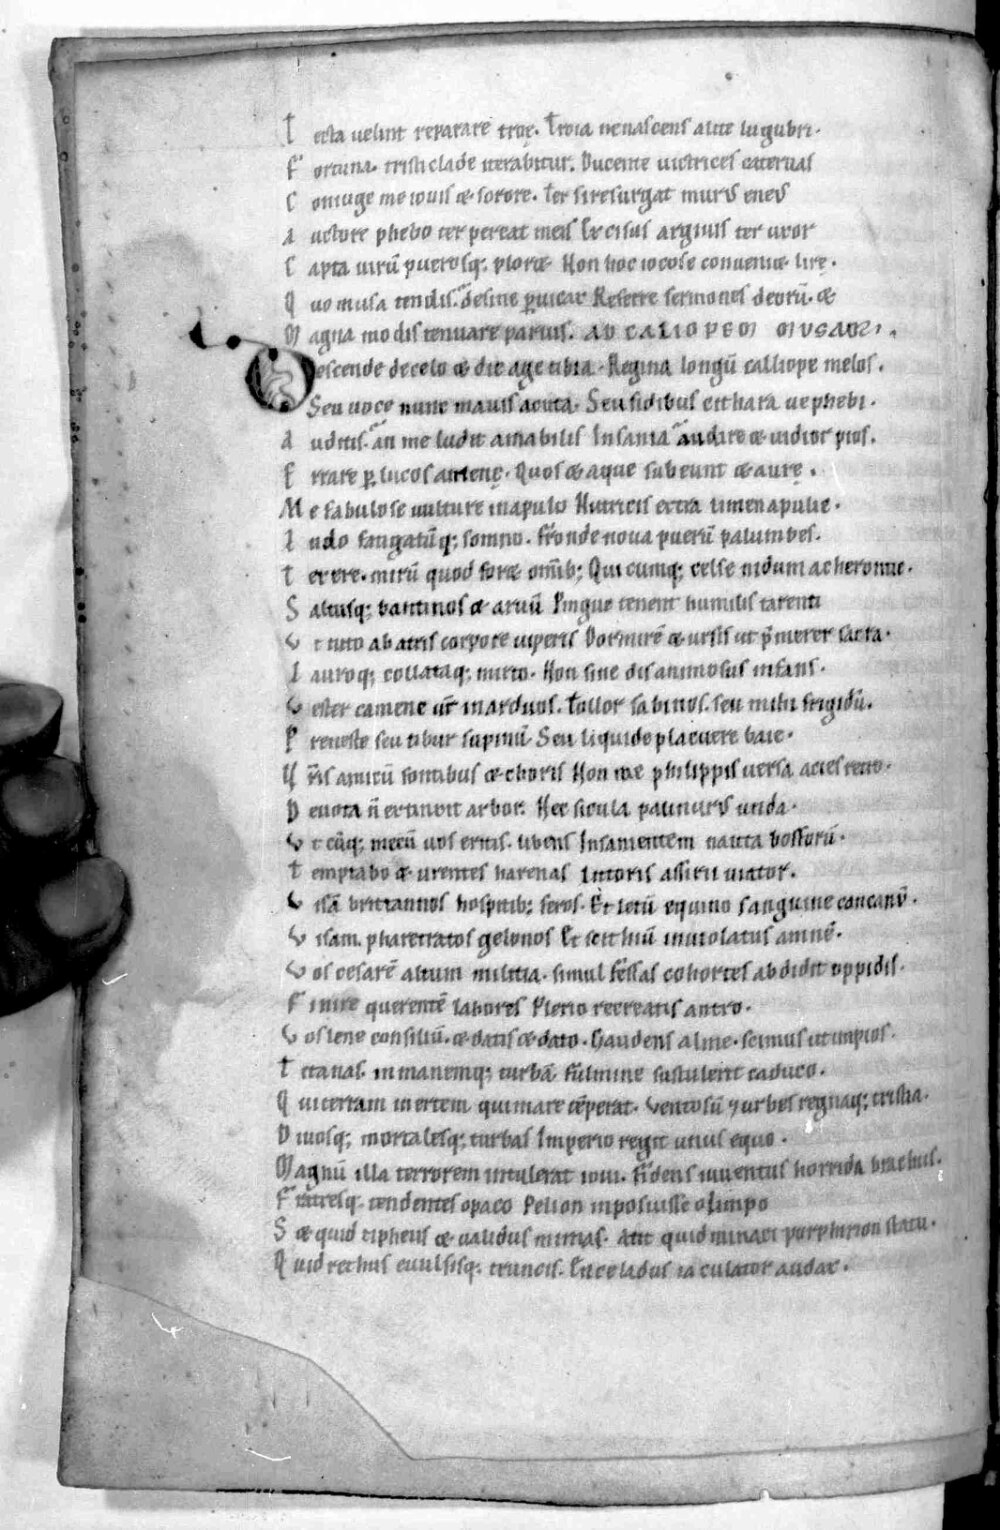 T ecta velint reparare troę. Troia renascens alite lugubri.
F ortuna. tristi clade iterabitur. Ducente victrices catervas
C oniuge me iouis & sorore. Ter si resurgat murus eneus
A uctore phebo ter pereat meis Excisus argiuis ter uxor
C apta uirū puerosq; plor& Non hoc iocose conueni& lirę.
Q uo musa tendis. desine puicax Referre sermones deorū. &
M agna modis tenuare paruis. AD CALIOPEM MUSAM.
Descende de celo & dic age tibia. Regina longū calliope melos.
Seu uoce nunc mauis acuta. Seu fidibus cithara ue phebi.
A uditis. an me ludit amabilis Insania audire & uidior pios.
E rrare p lucos amenę. Quos & aque subeunt & aurę.
M e fabulose uulture inapulo Nutricis extra limen apulie.
L udo fatigatūq; somno. Fronde noua puerū palumbes.
T exere. mirū quod for& omīb; Qui cumq; celse nidum acherontie.
S altusq; bantinos & aruū Pingue tenent humilis tarenti
V t tuto ab atris corpore uiperis Dormirē & ursis ut p̄merer sacra.
L auroq; collataq; mirto. Non sine dis animosus infans.
V ester camene ur̄ in arduos. Tollor sabinos. seu mihi frigidū.
P reneste seu tibur supinū Seu liquide placuere baie.
U r̄is amicū fontibus & choris Non me philippis uersa acies retro.
D euota n̄ extinxit arbor. Nec sicula palinuris unda.
V t cūq; mecū uos eritis. libens Insanientem nauita bosforū.
T emptabo & urentes harenas Littoris assirii uiator.
V isā brittannos hospitib; feros. Et letū equino sanguine concanū.
V isam. pharetratos gelonos Et scithiū inuiolatus amnē.
V os cesarē altum militia. simul fessas cohortes abdidit oppidis.
F inire querentē labores Pierio recreatis antro.
V os lene consiliū. & datis & dato. Gaudens alme. scimus ut impios.
T itanas. in manemq; turbā. Fulmine sustulerit caduco.
Q ui terram inertem qui mare tēperat. Ventosū 7 urbes regnaq; tristia.
D iuosq; mortalesq; turbas Imperio regit unus equo.
M agnū illa terrorem intulerat ioui. Fidens iuuentus horrida brachiis.
F ratresq. tendentes opaco Pelion imposuisse olimpo
S & quid tipheus & ualidus mimas. Aut quid minaci porphirion statu.
Q uid rethus euulsisq; truncis. Enceladus iaculator audax.